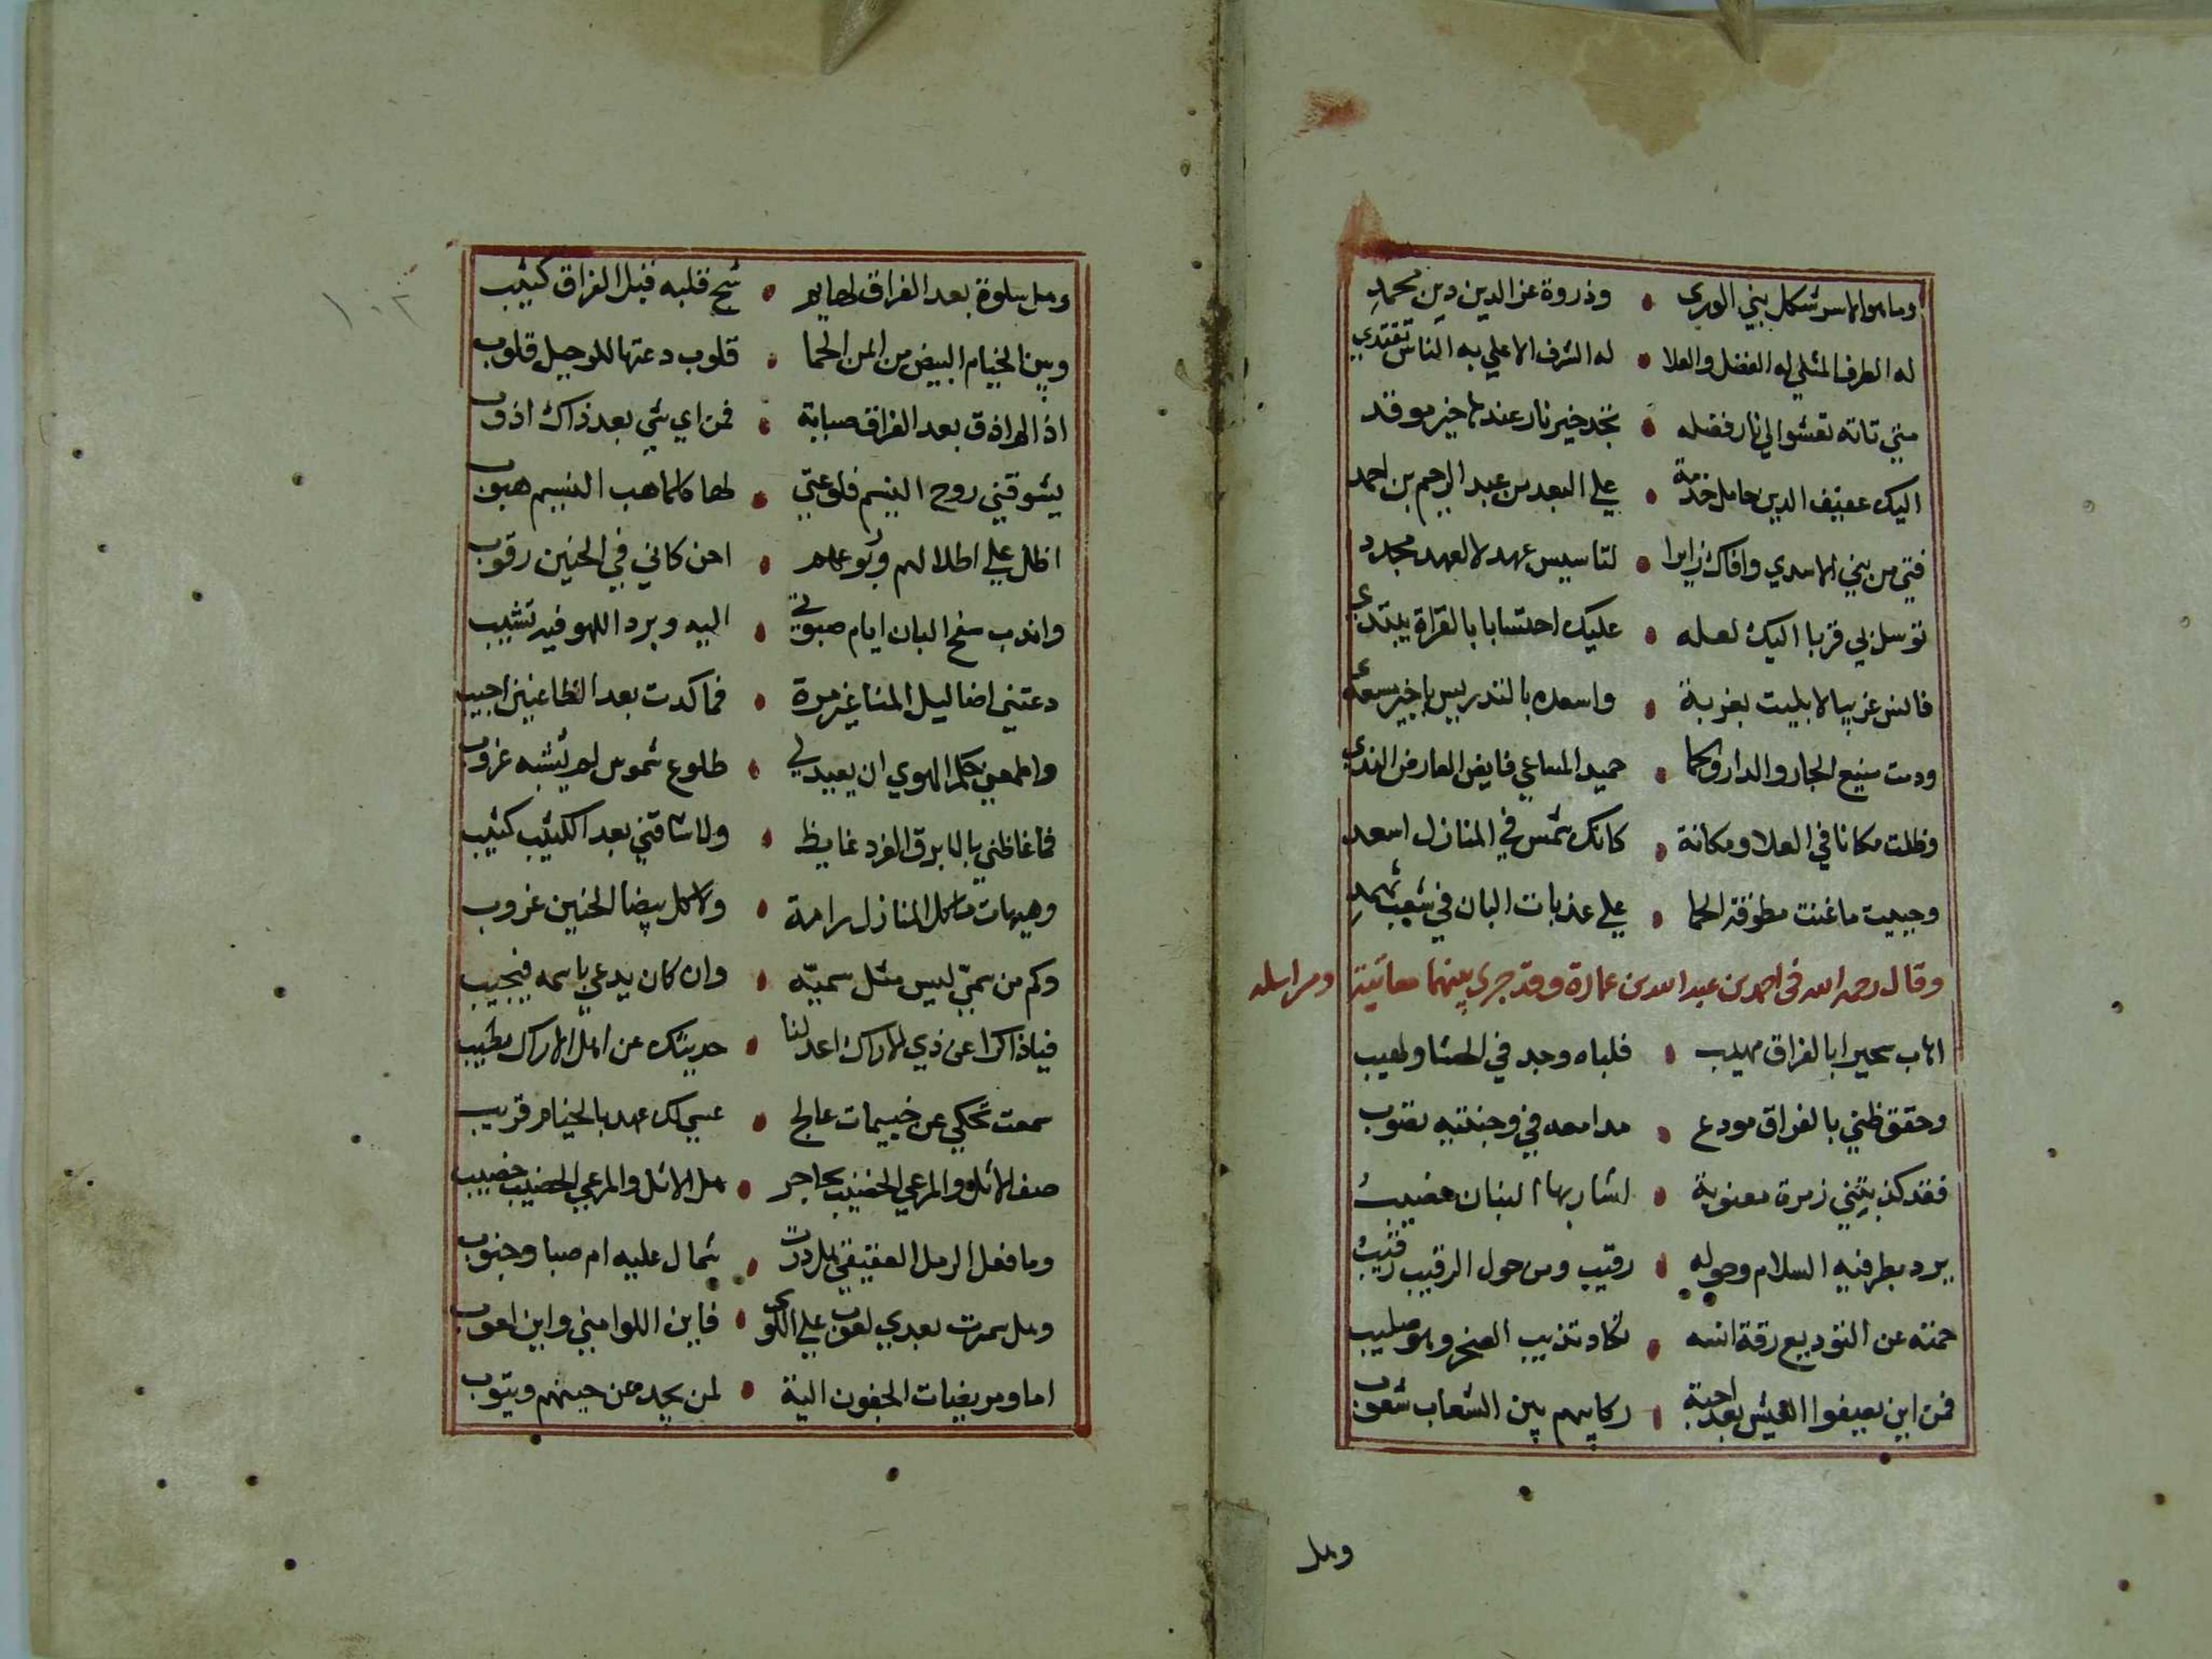 وما هو الا سر شكل بني الوري • وذروة عز الدين دين محمد
له الطرف المثلي له الفضل والعلا • له الشرف الاعلي به الناس تقتدي
متي تاته تعشوا الي نار فضله • تجد خير نار عندها خير موقد
اليك عفيف الدين حامل خدمة • علي البعد من عبد الرحيم بن احمد
فتي من بني الاسدي وافاك زايرا • لتاسيس عهد لا لعهد مجدد
توسل بي قربا اليك لعله • عليك احتسابا بالقراة يبتدي
فانس غريبا لا بليت بغربة • واسعده بالتدريس يا خير مسعد
ودمت منيع الجار والدار والحما • حميد المساعي فايض العارض الندي
وظلت مكانا في العلا ومكانة • كانك شمس في المنازل اسعد
وحييت ما غنت مطوقة الحما • علي عذبات البان في شعب ثهمد
وقال رحمه الله في احمد بن عبد الله بن عمارة وقد جري بينهما معاتبة ومراسله
اهاب سحيرا بالفراق مهيب • فلباه وجد في الحشا ولهيب
وحقق ظني بالفراق مودع • مدامعه في وجنتيه تصوب
فقد كذبتني زمرة معنوية • لشاربها البنان خضيب
يرد بطرفيه السلام وحوله • رقيب ومن حول الرقيب رقيب
حمته عن التوديع رقة انسه • تكاد تذيب الصخر وهو صليب
فمن اين يصفوا العيش بعد احبة • ركابهم بين الشعاب شعوب
وهل
وهل سلوة بعد الفراق لهايم • شج قلبه قبل الفراق كئيب
وبين الخيام البيض من ايمن الحما • قلوب دعتها للرحيل قلوب
اذا لم اذق بعد الفراق صبابة • فمن اي شي بعد ذاك اذوب
يشوقني روح النسيم فلوعتي • لها كلما هب النسيم هبوب
اظل علي اطلالهم وربوعهم • احن كاني في الحنين رقوب
واندب سفح البان ايام صبوتي • اليه وبرد اللهو فيه قشيب
دعتني اضاليل المنا غير مرة • فما كدت بعد الظاعنين اجيب
واطمعني حكم الهوي ان يعيد لي • طلوع شموس لم يشبه غروب
فما غاظني بالابرق الفرد غايظ • ولا شاقني بعد الكثيب كثيب
وهيهات ما كل المنازل رامة • ولا كل بيضا الجنين عروب
وكم من سمي ليس مثل سميه • وان كان يدعي باسمه فيجيب
فيا ذاكرا عن ذي الاراك اعد لنا • حديثك عن اهل الاراك يطيب
سمعت تحكي عن خييمات عالج • عسي لك عهد بالخيام قريب
صف الاثل والمرعي الخصيب بحاجر • هل الاثل والمرعي الخصيب خصيب
وما فعل الرمل العقيقي هل ذرت • شمال عليه ام صبا وجنوب
وهل سمرت بعدي لعوب علي اللوي • فاين اللوا مني واين لعوب
اما ومريضات الجفون الية • لمن يجد عن حبهم ويتوب